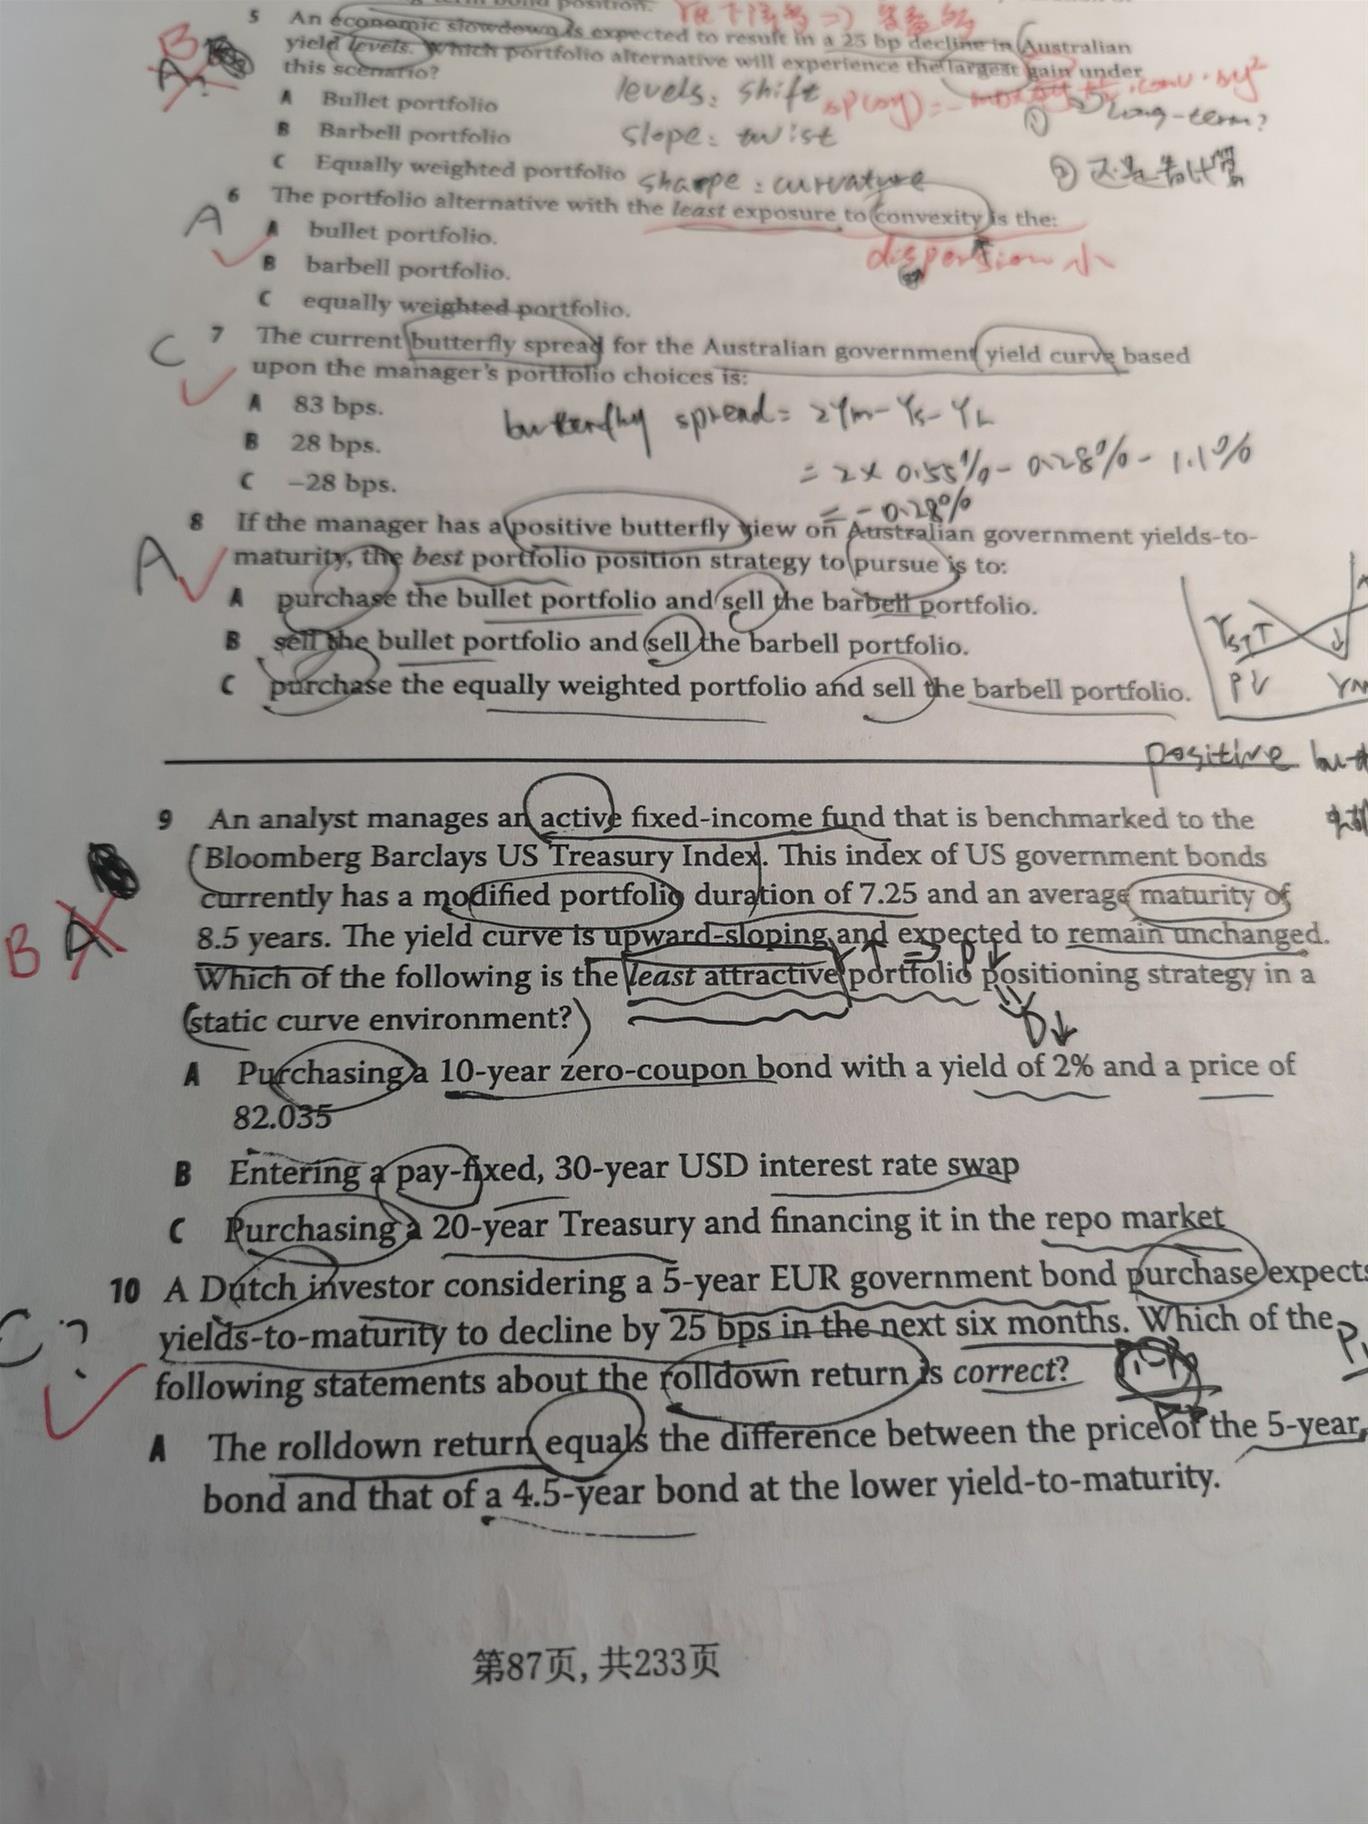 bond position.
B
5 An economic slowdown is expected to result in a 25 bp decline in Australian
yield levels. Which portfolio alternative will experience the largest gain under
this scenario?
A
A Bullet portfolio
levels: shift
long-term?
B Barbell portfolio
slope: twist
C Equally weighted portfolio
sharpe: curvature
② 还是看计算
6 The portfolio alternative with the least exposure to convexity is the:
A
A bullet portfolio.
dispersion 小
B barbell portfolio.
C equally weighted portfolio.
7 The current butterfly spread for the Australian government yield curve based
C
upon the manager's portfolio choices is:
A 83 bps.
butterfly spread = 2Ym - Ys - YL
B 28 bps.
= 2 × 0.55% - 0.28% - 1.1%
C −28 bps.
= -0.28%
8 If the manager has a positive butterfly view on Australian government yields-to-
A
maturity, the best portfolio position strategy to pursue is to:
A purchase the bullet portfolio and sell the barbell portfolio.
B sell the bullet portfolio and sell the barbell portfolio.
C purchase the equally weighted portfolio and sell the barbell portfolio.
YST
P↓
positive but
9 An analyst manages an active fixed-income fund that is benchmarked to the
Bloomberg Barclays US Treasury Index. This index of US government bonds
currently has a modified portfolio duration of 7.25 and an average maturity of
B A
8.5 years. The yield curve is upward-sloping and expected to remain unchanged.
Which of the following is the least attractive portfolio positioning strategy in a
static curve environment?
D↓
A Purchasing a 10-year zero-coupon bond with a yield of 2% and a price of
82.035
B Entering a pay-fixed, 30-year USD interest rate swap
C Purchasing a 20-year Treasury and financing it in the repo market
10 A Dutch investor considering a 5-year EUR government bond purchase expects
C?
yields-to-maturity to decline by 25 bps in the next six months. Which of the
following statements about the rolldown return is correct?
A The rolldown return equals the difference between the price of the 5-year
bond and that of a 4.5-year bond at the lower yield-to-maturity.
第87页, 共233页